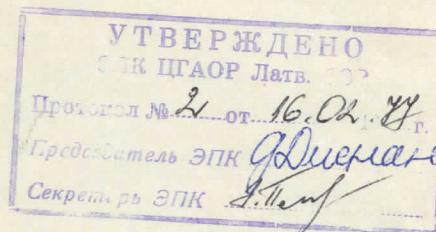 УТВЕРЖДЕНО
ЭПК ЦГАОР Латв. ССР
Протокол № 2 от 16.02.77 г.
Председатель ЭПК
Секретарь ЭПК